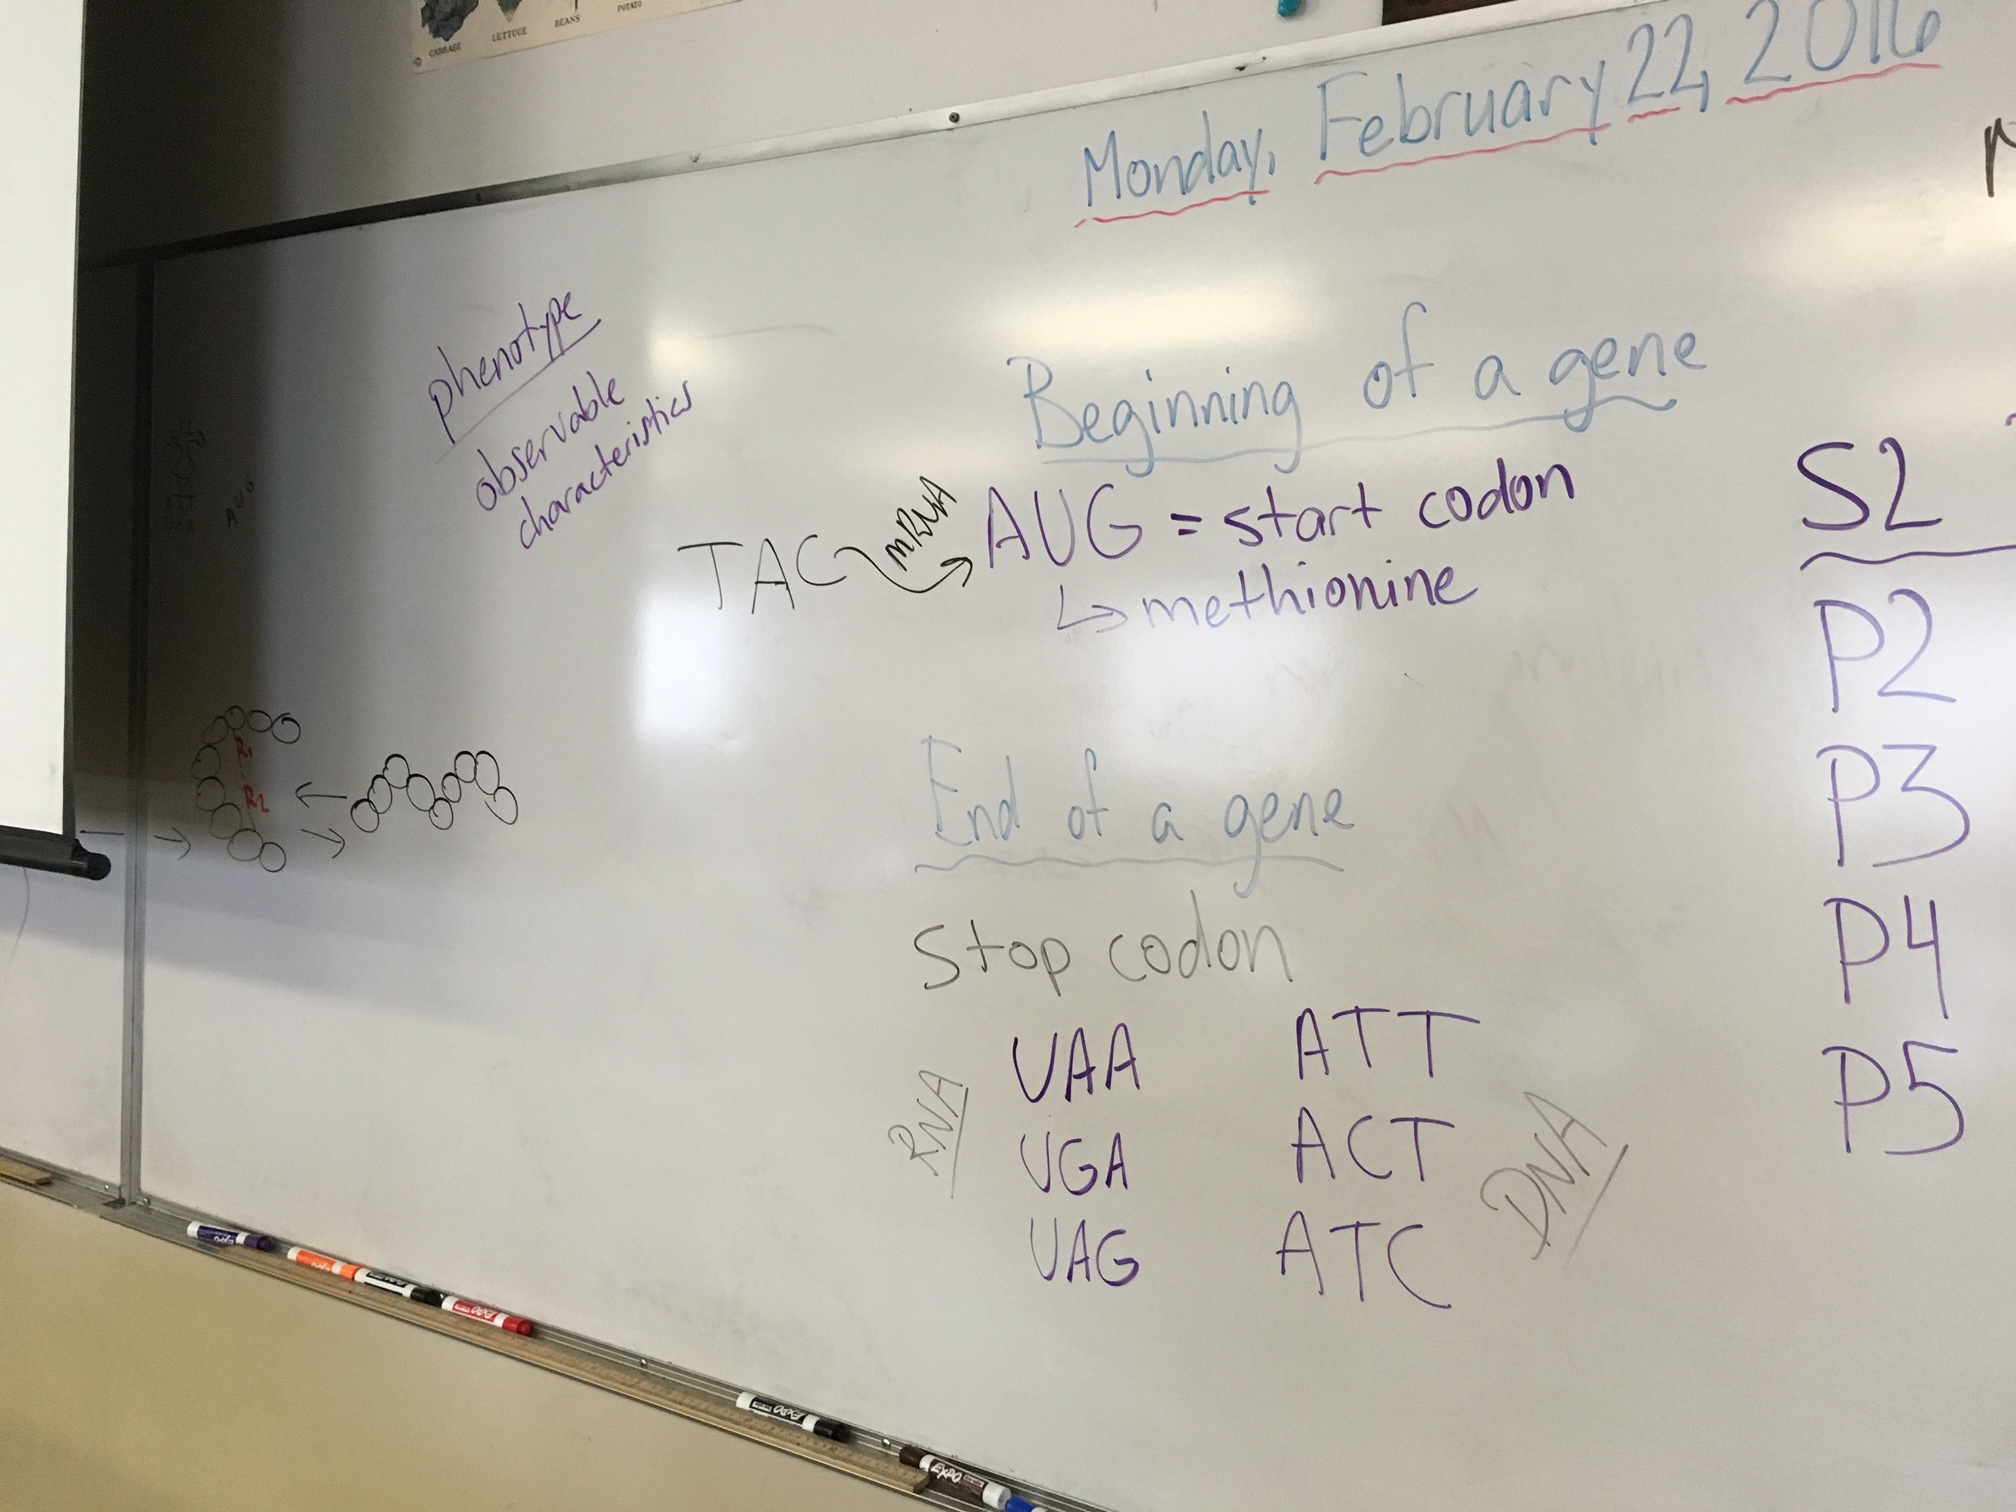 CABBAGE
LETTUCE
BEANS
POTATO
Monday, February 22, 2016
phenotype
observable
characteristics
Beginning of a gene
TAC mRNA AUG = start codon
methionine
AUG
R1
R2
End of a gene
Stop codon
RNA
UAA ATT
UGA ACT
UAG ATC
DNA
S2
P2
P3
P4
P5
EXPO
EXPO
EXPO